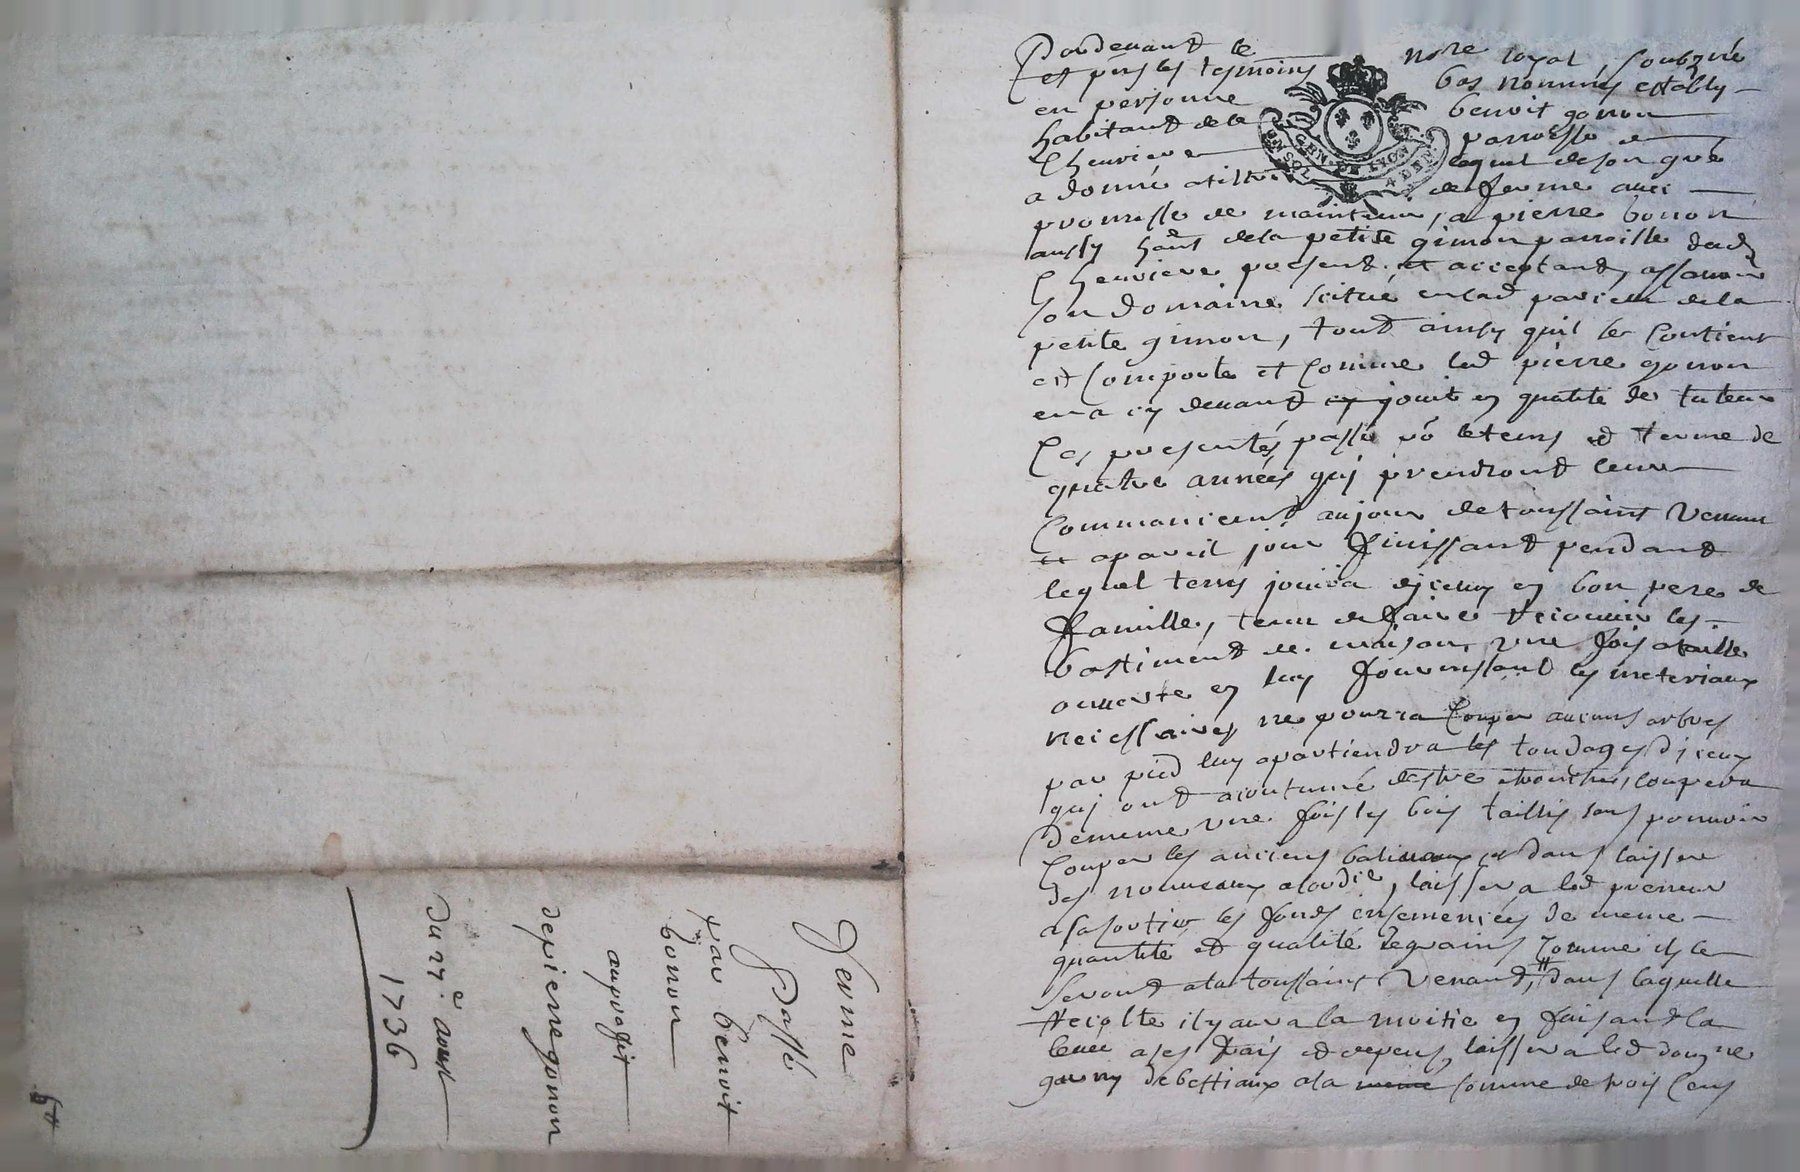 Pardevant le nore royal, soubzné
et pns les tesmoins bas nommés estably
en personne benoit gonon
habitant de la parroisse de
Chenviere lequel de son gré
a donné a tiltre de ferme avec
promesse de maintenir, a pierre gonon
aussy hant de la petite gimon parroisse dud
Chenviere present et acceptant, assavoir
son domaine scitué aud la
petite gimon, tout ainsy quil se contient
et comporte et comme led pierre gonon
en a cy devant jouit en qualité de tuteur
Ces presentes passé po le tems et terme de
quatre années quj prendront leur
Commancemt au jour de toussaint venant
et a pareil jour finissant pendant
lequel tems jouira djceluy en bon pere de
famille, tenu de faire recouvrir les
bastiment de maison une fois a taille
ouverte en luy fournissant les materiaux
necessaires ne pourra couper aucuns arbres
par pied luy apartiendra les tondages djceux
quj ont acoutumé destre ebranchés, coupera
de meme une fois les bois taillis sans pouvoir
couper les anciens baliveaux et dans laisser
des nouveaux a lordre, laissera led preneur
a sa sortie les fonds ensemencées de meme
quantité et qualité de grains comme ils le
seront a la toussaint venant, dans laquelle
Recolte il y aura la moitie en faisant la
levée a ses frais et depens, laissera led domne
garny de bestiaux a la somme de trois cens
ferme
Passée
par benoit
gonon
au profit
de pierre gonon
du 27e aoust
1736
GEN DE LYON
4 DEN